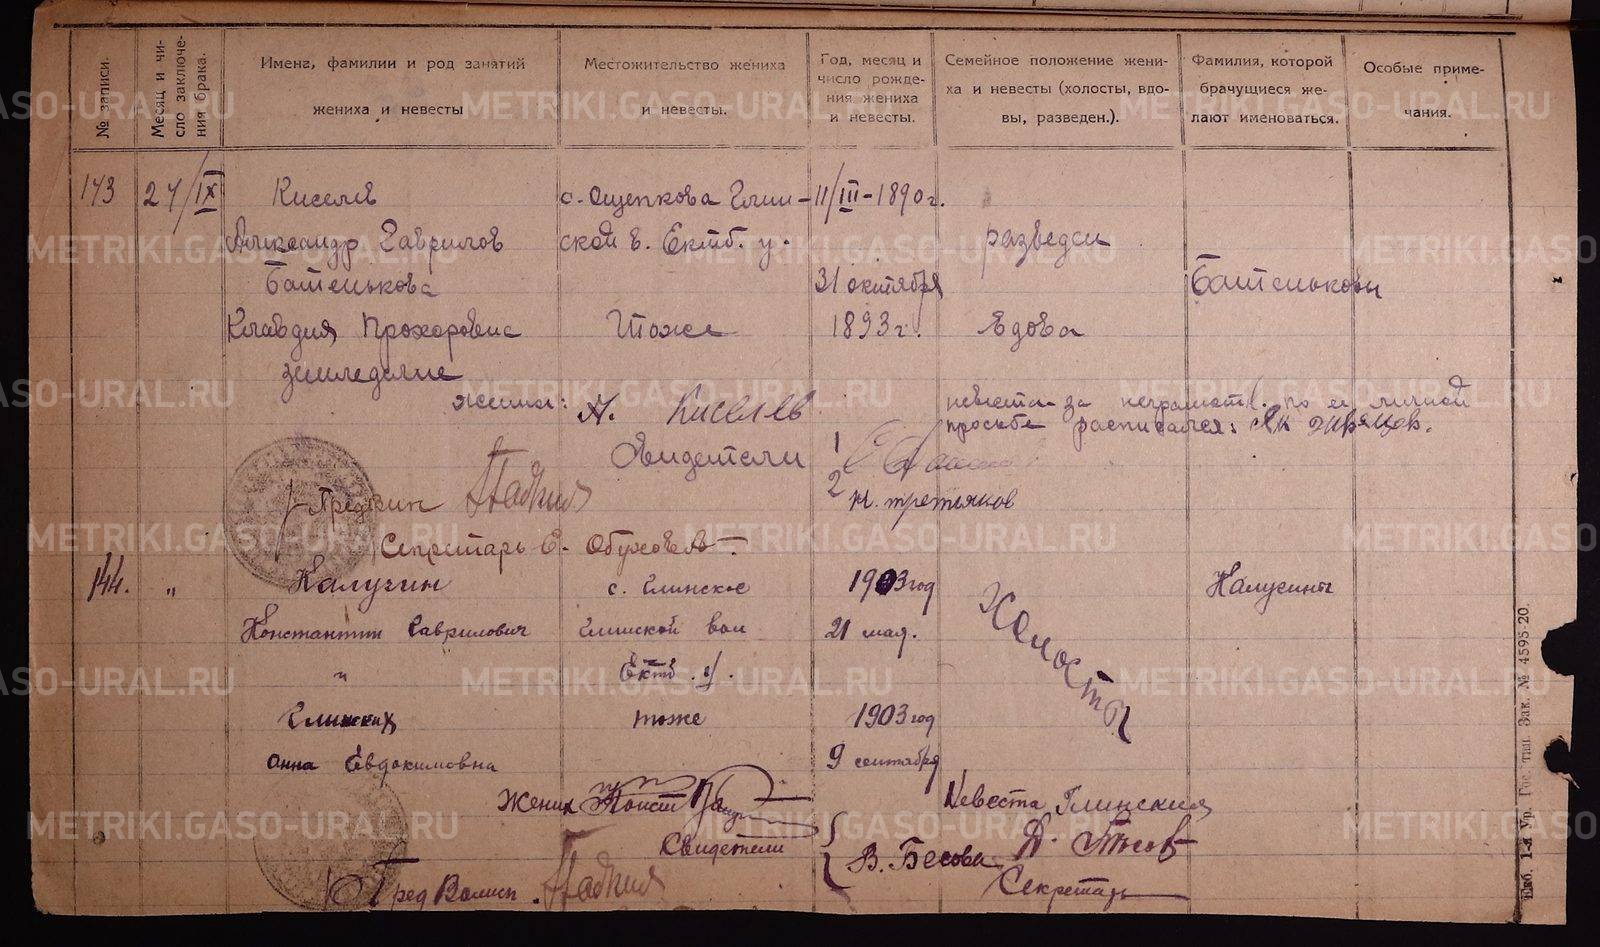 № записи.
Месяц и чи-
сло заключе-
ния брака.
Имена, фамилии и род занятий
жениха и невесты
Местожительство жениха
и невесты.
Год, месяц и
число рожде-
ния жениха
и невесты.
Семейное положение жени-
ха и невесты (холосты, вдо-
вы, разведен.).
Фамилия, которой
брачущиеся же-
лают именоваться.
Особые приме-
чания.
143
27/IX
Киселев
Александр Гаврилов
Батенькова
Клавдия Прохоровна
земледелие
с. Ощепкова Глин-
ской в. Ектб. у.
Тоже
11/III-1890 г.
31 октября
1893 г.
разведен
Вдова
Батеньковы
жених: А. Киселев
невеста за неграмотн. по ее личной
просьбе расписался: Як
Свидетели
1
2 Н. Третьяков
Секретарь Обухов
144. "
Калугин
Константин Гаврилович
"
Глинских
Анна Евдокимовна
с. Глинское
Глинской вол
Ектб. у.
тоже
1903 год
21 мая.
1903 год
9 сентября
Холосты
Калугины
Жених Конст
Невеста Глинская
Свидетели
В. Бесова
Пред Волисп.
Секретарь
Екб. 1-я Ур. Гос. тип. Зак. № 4595-20.
METRIKI.GASO-URAL.RU